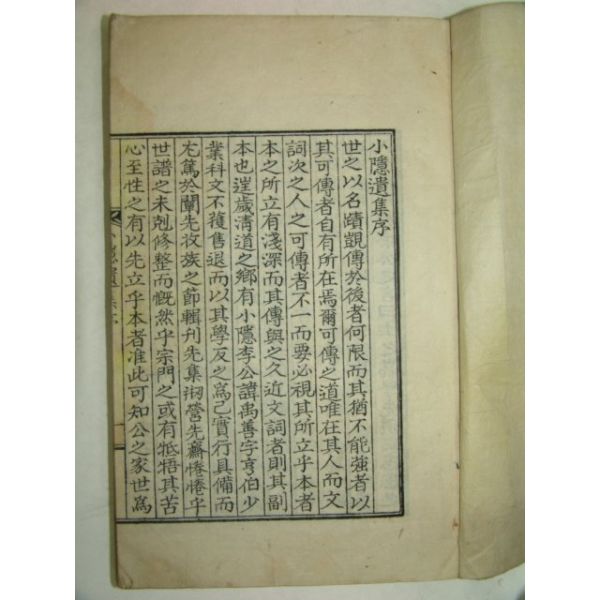 小隱遺集序
世之以名蹟覬傳於後者何限而其猶不能強者以
其可傳者自有所在焉爾可傳之道唯在其人而文
詞次之人之可傳者不一而要必視其所立乎本者
本之所立有淺深而其傳與之久近文詞者則其副
本也逞歲清道之鄉有小隱李公諱禹善字亨伯少
業科文不獲售退而以其學反之爲己實行具備而
尤篤於闡先牧族之節輯刊先集剏營先齋惓惓乎
世譜之未剋修整而慨然乎宗門之或有牴牾其苦
心至性之有以先立乎本者准此可知公之家世爲
隱遺集序